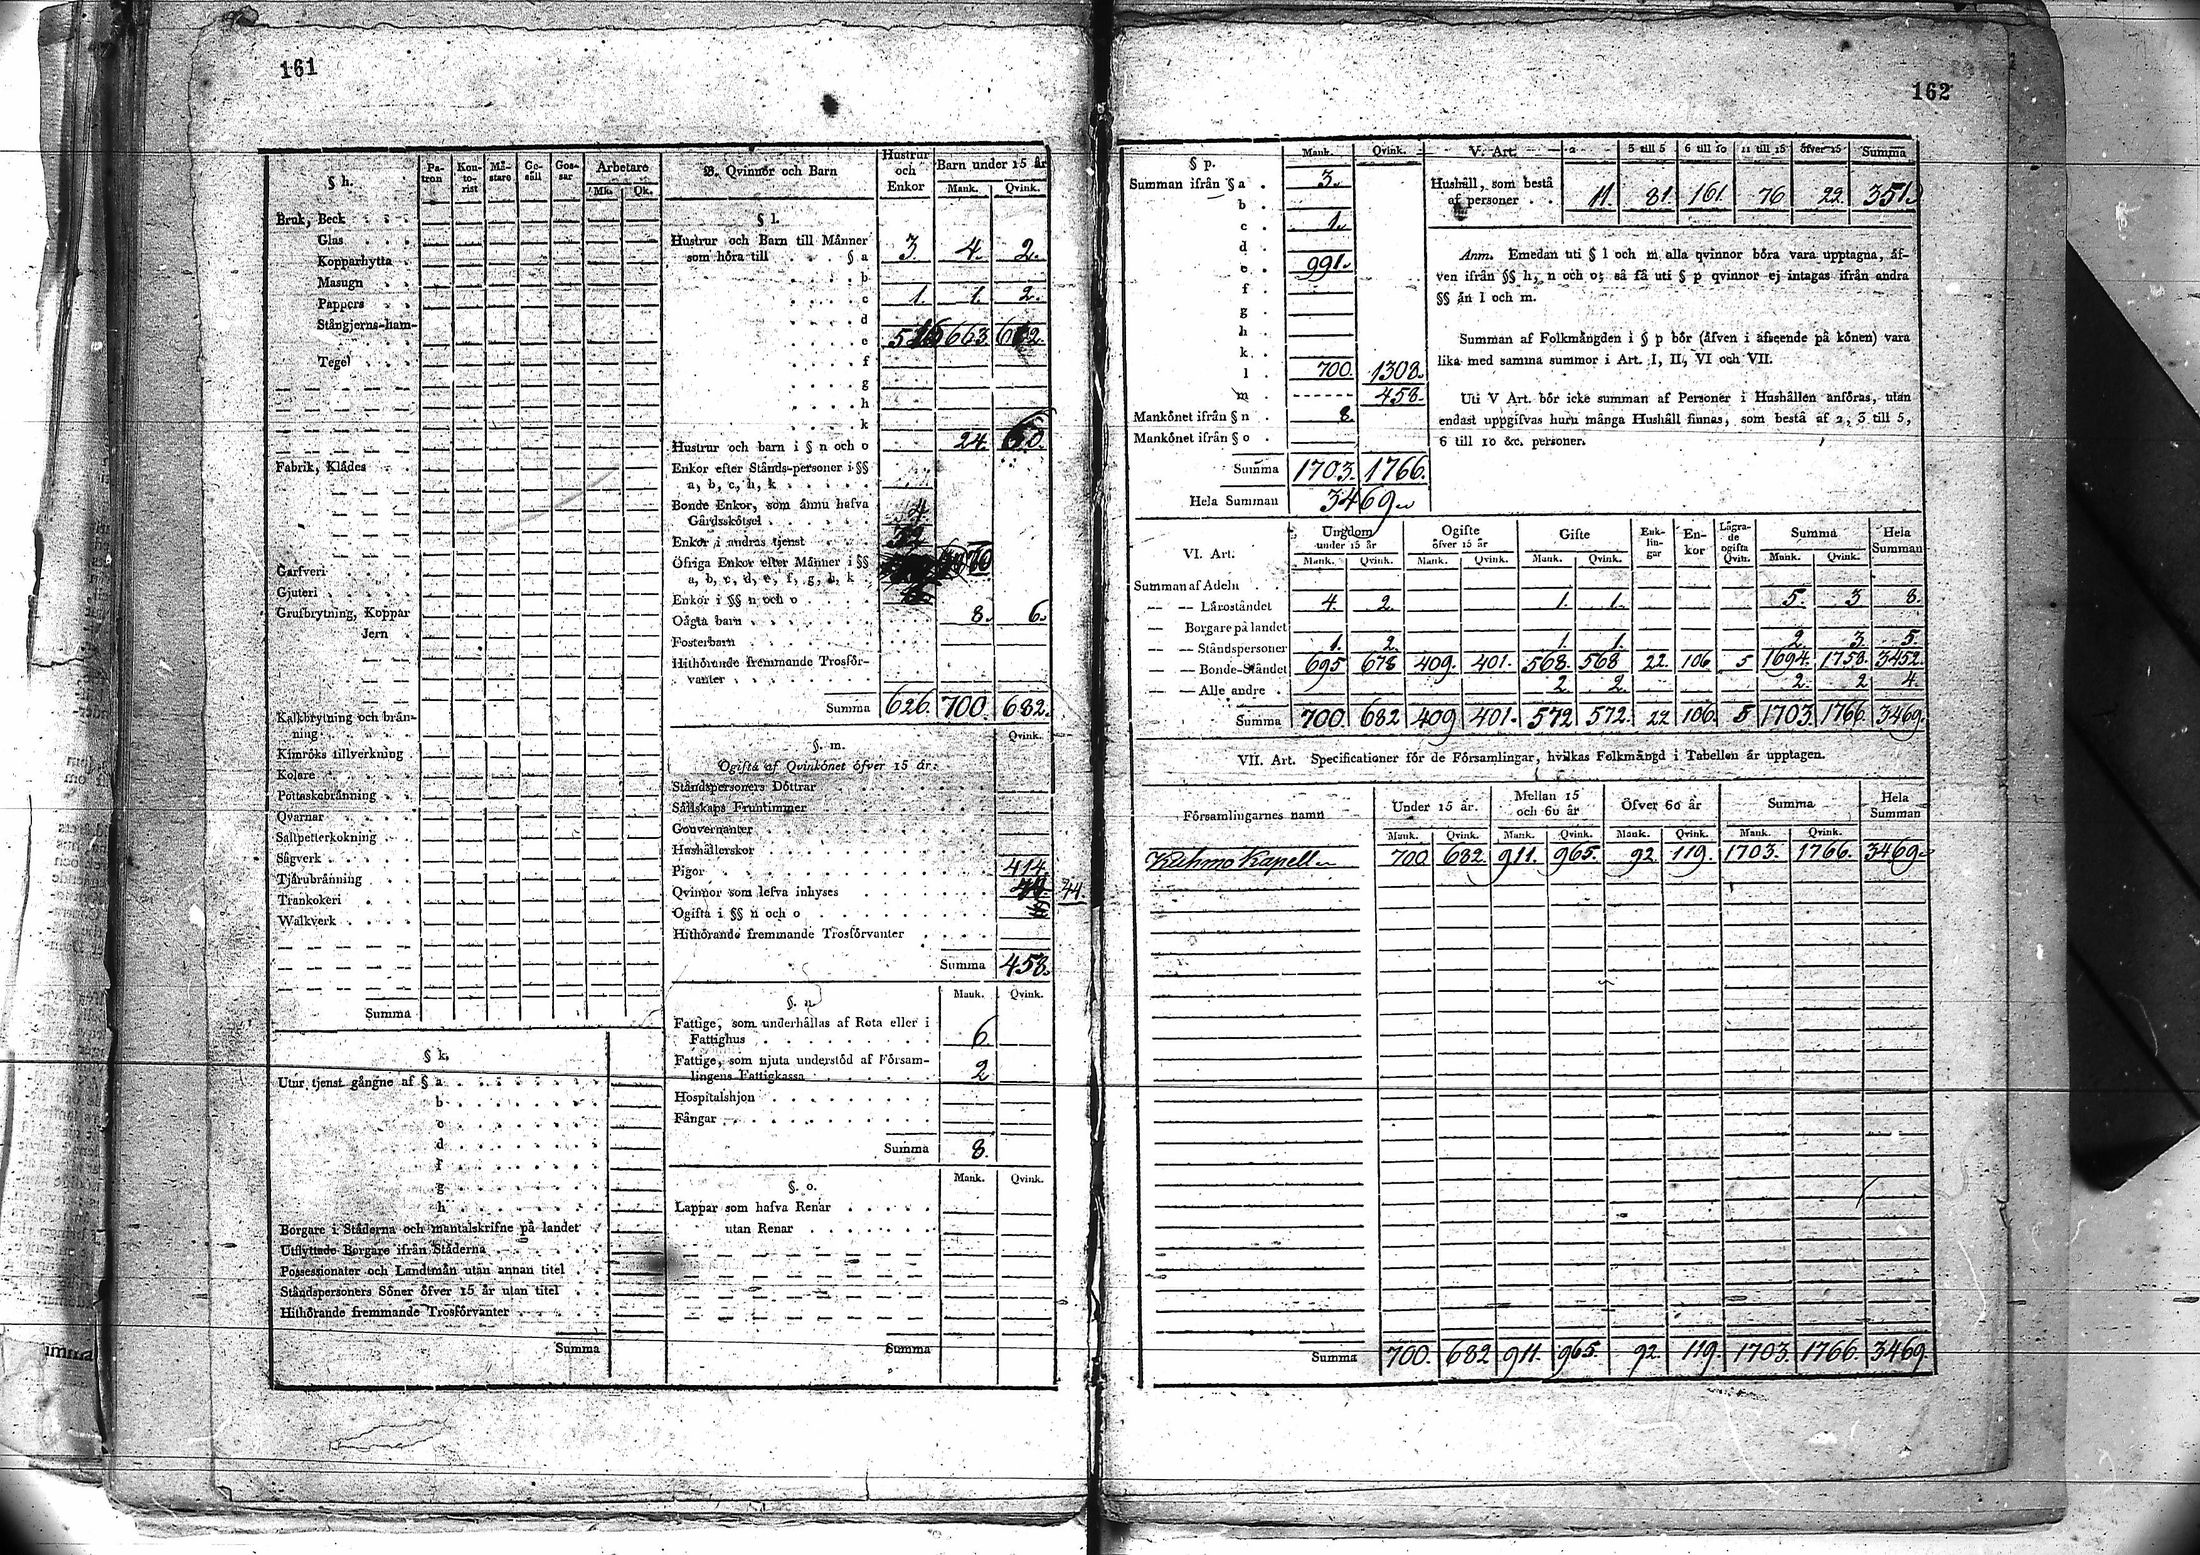 161
§ h.
Pa-tron
Kon-to-rist
Mä-stare
Ge-säll
Gos-sar
Arbetare
Mk. Qk.
Bruk, Beck
Glas
Kopparhytta
Masugn
Pappers
Stångjerns-ham-
Tegel
Fabrik, Klädes
Garfveri
Gjuteri
Grufbrytning, Koppar
Jern
Kalkbrytning och brän-
ning
Kimröks tillverkning
Kolare
Pottaskebränning
Qvarnar
Saltpetterkokning
Sågverk
Tjärubränning
Trankokeri
Walkverk
Summa
§ k.
Utur tjenst gångne af § a
b
c
d
f
g
h
Borgare i Städerna och mantalskrifne på landet
Utflyttade Borgare ifrån Städerna
Possessionater och Landtmän utan annan titel
Ståndspersoners Söner öfver 15 år utan titel
Hithörande fremmande Trosförvanter
Summa
B. Qvinnor och Barn
Hustrur och Enkor
Barn under 15 år
Mank. Qvink.
§ l.
Hustrur och Barn till Männer
som höra till § a 3. 4. 2.
b
c 1. 1. 2.
d
e 663
f
g
h
k
Hustrur och barn i § n och o 24.
Enkor efter Stånds-personer i §§
a, b, c, h, k
Bonde Enkor, som ännu hafva
Gårdsskötsel 4
Enkor i andras tjenst
Öfriga Enkor efter Männer i §§
a, b, c, d, e, f, g, h, k
Enkor i §§ n och o
Oägta barn 8. 6.
Fosterbarn
Hithörande fremmande Trosför-
vanter
Summa 626. 700. 682.
§. m. Qvink.
Ogifta af Qvinkönet öfver 15 år.
Ståndspersoners Döttrar
Sällskaps Fruntimmer
Gouvernanter
Hushållerskor
Pigor 414.
Qvinnor som lefva inhyses 44.
Ogifta i §§ n och o
Hithörande fremmande Trosförvanter
Summa 458.
§. n Mank. Qvink.
Fattige, som underhållas af Rota eller i
Fattighus 6.
Fattige, som njuta understöd af Försam-
lingens Fattigkassa 2
Hospitalshjon
Fångar
Summa 8.
§. o. Mank. Qvink.
Lappar som hafva Renar
utan Renar
Summa
162
§ p. Mank. Qvink.
Summan ifrån § a 3.
b
c 1.
d
e 991.
f
g
h
k
l 700. 1308.
m 458.
Mankönet ifrån § n 8.
Mankönet ifrån § o
Summa 1703. 1766.
Hela Summan 3469.
V. Art. 2 3 till 5 6 till 10 11 till 15 öfver 15 Summa
Hushåll, som bestå
af personer 11. 81. 161. 76 22. 351.
Anm. Emedan uti § l och m alla qvinnor böra vara upptagna, äf-
ven ifrån §§ h, n och o; så få uti § p qvinnor ej intagas ifrån andra
§§ än l och m.
Summan af Folkmängden i § p bör (äfven i afseende på könen) vara
lika med samma summor i Art. I, II, VI och VII.
Uti V Art. bör icke summan af Personer i Hushållen anföras, utan
endast uppgifvas huru många Hushåll finnas, som bestå af 2, 3 till 5,
6 till 10 &c. personer.
VI. Art.
Ungdom under 15 år
Ogifte öfver 15 år
Gifte
Enk-lin-gar
En-kor
Lägra-de ogifta Qvin.
Summa
Hela Summan
Mank. Qvink. Mank. Qvink. Mank. Qvink. Mank. Qvink.
Summan af Adeln
— — Läroståndet 4. 2. 1. 1. 5. 3 8.
— Borgare på landet
— — Ståndspersoner 1. 2. 1. 1. 2. 3. 5.
— — Bonde-Ståndet 695 678 409. 401. 568. 568 22. 106 5 1694. 1758. 3452.
— — Alle andre 2. 2. 2. 2 4.
Summa 700. 682 409 401. 572 572. 22 106. 5 1703. 1766. 3469.
VII. Art. Specificationer för de Församlingar, hvilkas Folkmängd i Tabellen är upptagen.
Församlingarnes namn
Under 15 år.
Mellan 15 och 60 år
Öfver 60 år
Summa
Hela Summan
Mank. Qvink. Mank. Qvink. Mank. Qvink. Mank. Qvink.
Kuhmo Kapell 700 682. 911. 965. 92 119. 1703. 1766. 3469
Summa 700. 682 911. 965. 92. 119. 1703. 1766. 3469